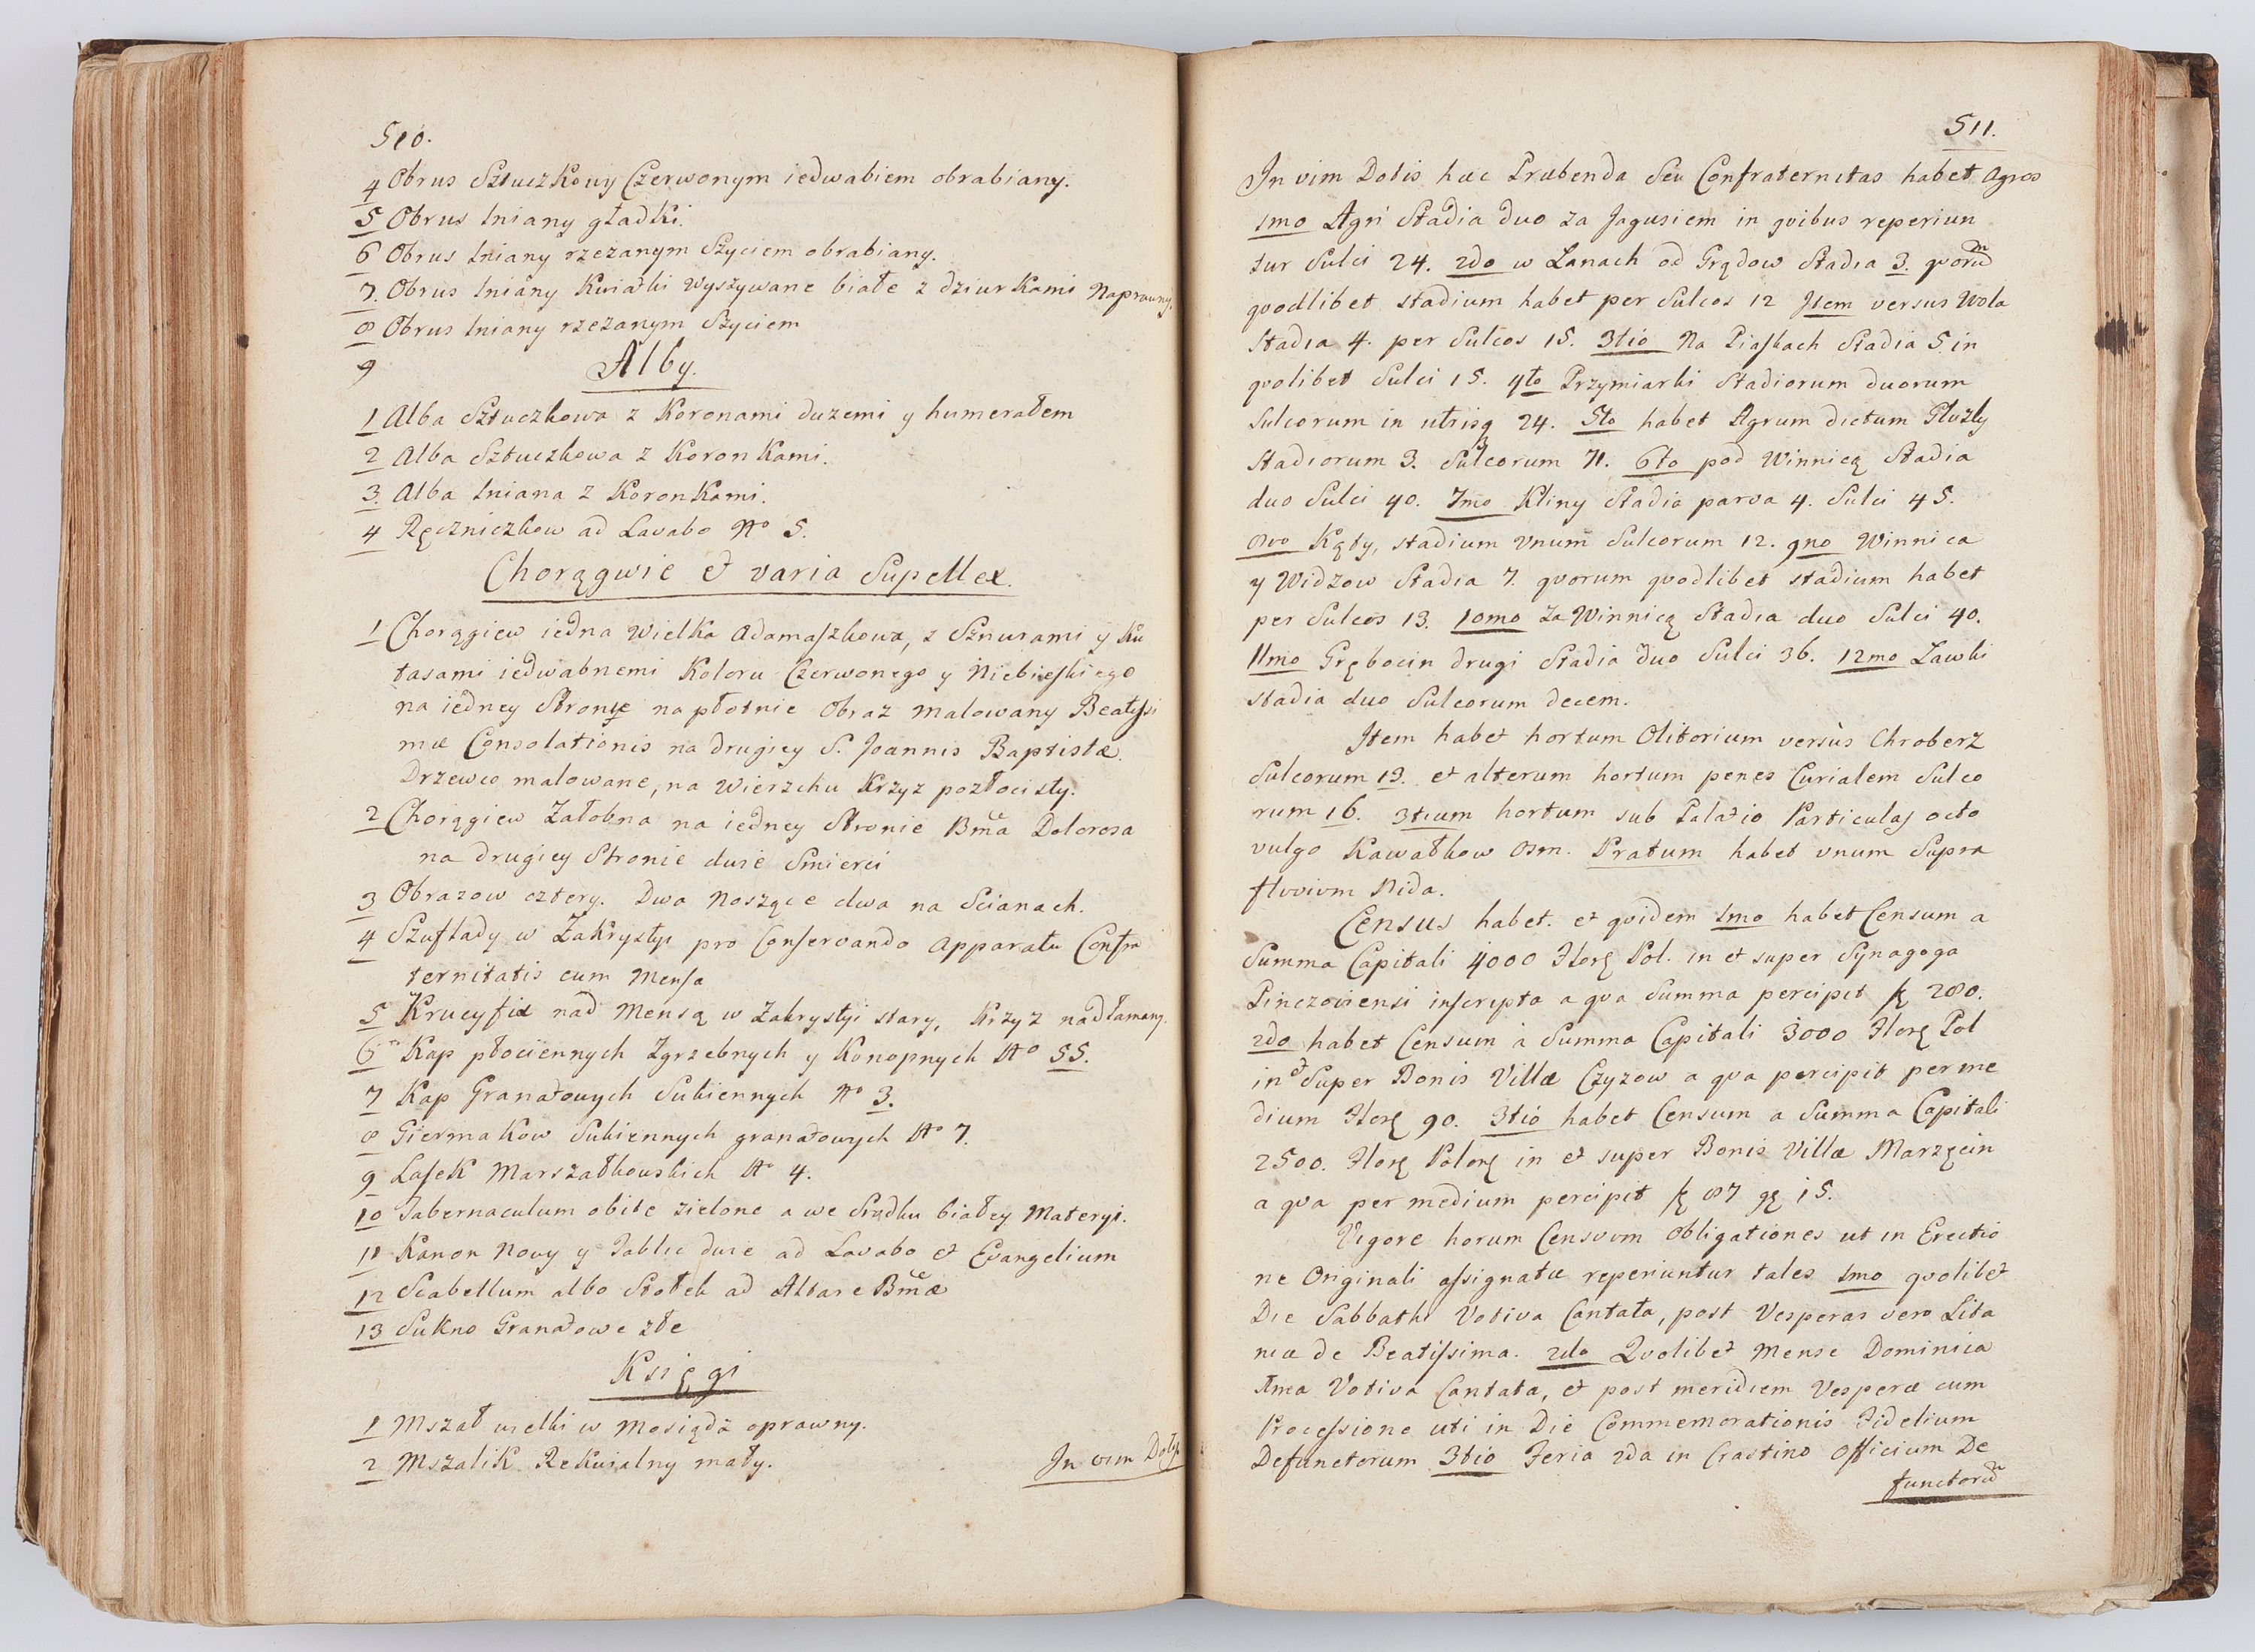 510.
4 Obrus Sztuczkowy Czerwonym iedwabiem obrabiany.
5 Obrus lniany gładki.
6 Obrus lniany rzezanym Szyciem obrabiany.
7. Obrus lniany Kwiatki wyszywane białe z dziurkami Naprawny.
8 Obrus lniany rzezanym Szyciem
9 Alby.
1 Alba Sztuczkowa z Koronami duzemi y humerałem
2 Alba Sztuczkowa z KoronKami.
3. Alba lniana z KoronKami.
4 Ręczniczkow ad Lavabo No 5.
Chorągwie et varia Supellex.
1 Chorągiew iedna Wielka Adamaszkowa, z Sznurami y Ku
tasami iedwabnemi Koloru Czerwonego y Niebieskiego
na iedney Stronie na płotnie Obraz malowany Beatissi
mæ Consolationis na drugiey S. Joannis Baptistæ.
Drzewco malowane, na Wierzchu Krzyz pozłocisty.
2 Chorągiew Załobna na iedney Stronie Bmæ Dolorosa
na drugiey Stronie dusie Smierci
3 Obrazow cztery. Dwa Noszące dwa na Scianach.
4 Szuflady w Zakrystyi pro Conservando Apparatu Confra
ternitatis cum Mensa
5 Krucyfix nad Mensą w Zakrystyi stary, Krzyz nadłamany.
6 Kap płociennych Zgrzebnych y Konopnych No 55.
7 Kap Granatowych Sukiennych No 3.
8 Giermakow Sukiennych granatowych No 7.
9 LaseK Marszałkowskich No 4.
10 Tabernaculum obite zielone a we Srzodku białey Materyi.
11 Kanon Nowy y Tablic dwie ad Lavabo et Evangelium
12 Scabellum albo Stołek ad Altare Bmæ
13 Sukno Granatowe złe
Księgi
1 Mszał wielki w Mosiądz oprawny.
2 MszaliK Rekwialny mały.
In vim Dotis
511.
In vim Dotis hæc Præbenda Seu Confraternitas habet Agros
1mo Agri Stadia duo za Jagusiem in qvibus reperiun
tur Sulci 24. 2do w Lanach od Grądow Stadia 3. qvorum
qvodlibet stadium habet per Sulcos 12 Item versus Wola
Stadia 4. per Sulcos 15. 3tio Na Piaskach Stadia 5. in
qvolibet Sulci 15. 4to Przymiarki Stadiorum duorum
Sulcorum in utrisq 24. 5to habet Agrum dictum Płozły
Stadiorum 3. Sulcorum 71. 6to pod Winnicą Stadia
duo Sulci 40. 7mo Kliny Stadia parva 4. Sulci 45.
8vo Kąty, stadium Vnum Sulcorum 12. 9no Winnica
y Widzow Stadia 7. qvorum qvodlibet stadium habet
per Sulcos 13. 10mo za Winnicą Stadia duo Sulci 40.
11mo Grębocin drugi Stadia duo Sulci 36. 12mo Ławki
stadia duo Sulcorum decem.
Item habet hortum Olitorium versùs Chroberz
Sulcorum 13. et alterum hortum penes Curialem Sulco
rum 16. 3tium hortum sub Palatio Particulas octo
vulgo Kawałkow osm. Pratum habet vnum Supra
fluvium Nida.
Census habet. et qvidem 1mo habet Censum a
Summa Capitali 4000 Flor Pol. in et super Synagoga
Pinczoviensi inscripta a qva Summa percipit f 280.
2do habet Censum à Summa Capitali 3000 Flor Pol
in et Super Bonis Villæ Czyzow a qva percipit per me
dium Flor 90. 3tió habet Censum a Summa Capitali
2500. Flor Polon in et super Bonis Villæ Marzęcin
a qva per medium percipit f 87 g 15.
Vigore horum Censuum Obligationes ut in Erectio
ne Originali assignatæ reperiuntur tales 1mo qvolibet
Die Sabbathi Votiva Cantata, post Vesperas vero Lita
niæ de Beatissima. 2do Qvolibet Mense Dominica
1ma Votiva Cantata, et post meridiem Vesperæ cum
Processione uti in Die Commemorationis Fidelium
Defunctorum 3tió Feria 2da in Crastino Officium De
functorum